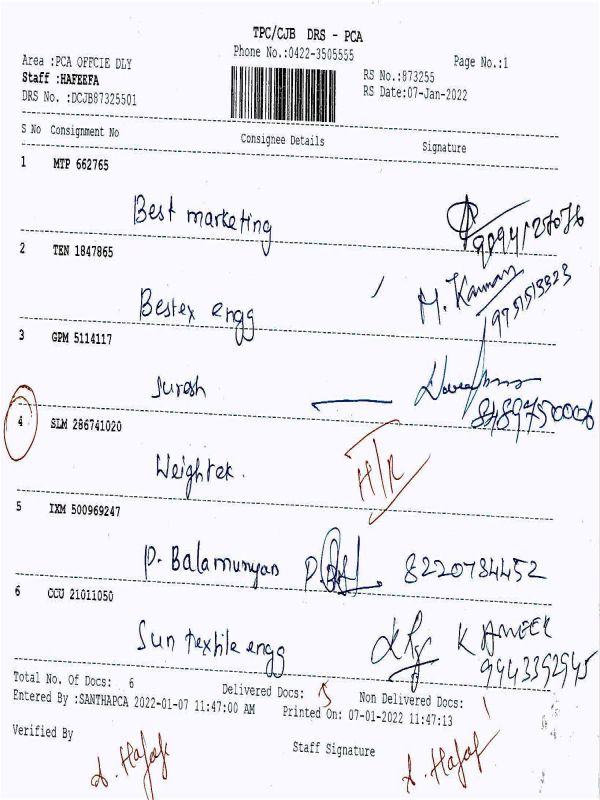 TPC/CJB DRS - PCA
Phone No.:0422-3505555
Page No.:1
Area :PCA OFFCIE DLY
Staff :HAFEEFA
RS No.:873255
DRS No. :DCJB87325501
RS Date:07-Jan-2022
S No Consignment No Consignee Details Signature
1 MTP 662765
Best marketing
2 TEN 1847865
Bestex engg M. Kannan
9751513323
3 GPM 5114117
Suresh
8489750006
4 SLM 286741020
Weightek. H/R
5 IXM 500969247
P. Balamurugan 8220784452
6 CCU 21011050
Sun textile engg K AMEER
9443392945
Total No. Of Docs: 6 Delivered Docs: 5 Non Delivered Docs: 1
Entered By :SANTHAPCA 2022-01-07 11:47:00 AM Printed On: 07-01-2022 11:47:13
Verified By Staff Signature